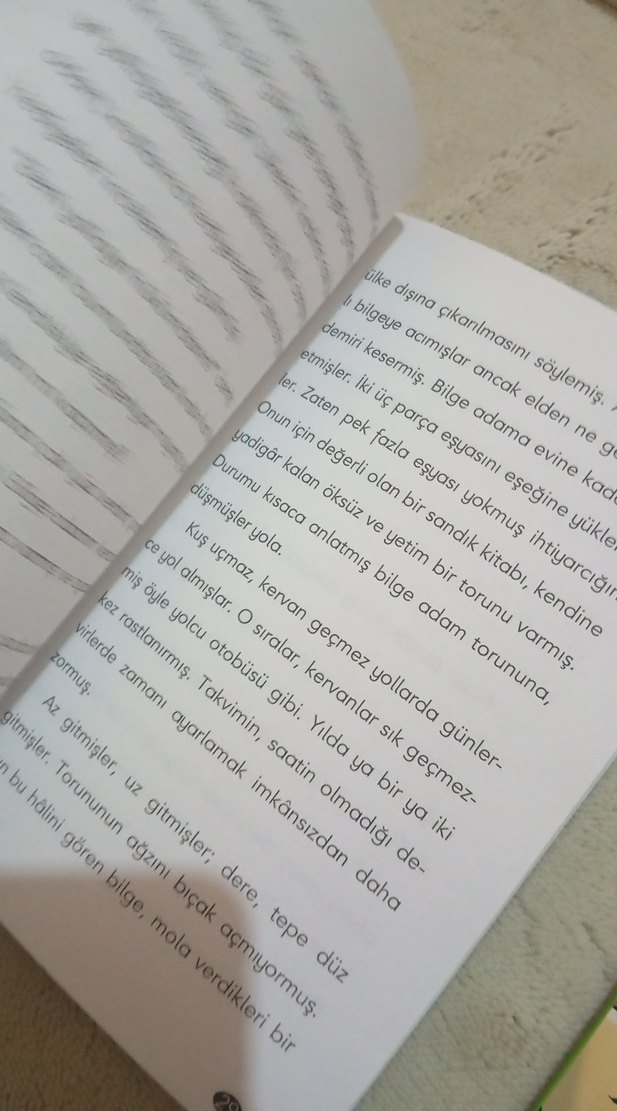 ülke dışına çıkarılmasını söylemiş.
lı bilgeye acımışlar ancak elden ne
demiri kesermiş. Bilge adama evine
etmişler. İki üç parça eşyasını eşeğine
ler. Zaten pek fazla eşyası yokmuş
Onun için değerli olan bir sandık kitabı, kendine
yadigâr kalan öksüz ve yetim bir torunu varmış.
Durumu kısaca anlatmış bilge adam torununa,
düşmüşler yola.
Kuş uçmaz, kervan geçmez yollarda günler-
ce yol almışlar. O sıralar, kervanlar sık geçmez-
miş öyle yolcu otobüsü gibi. Yılda ya bir ya iki
kez rastlanırmış. Takvimin, saatin olmadığı de-
virlerde zamanı ayarlamak imkânsızdan daha
zormuş.
Az gitmişler, uz gitmişler; dere, tepe düz
gitmişler. Torununun ağzını bıçak açmıyormuş.
bu hâlini gören bilge, mola verdikleri bir